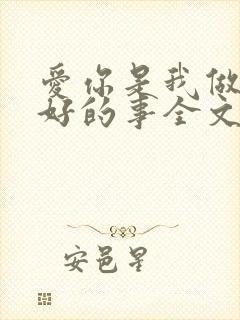 爱你是我做
好的事全文
安邑星